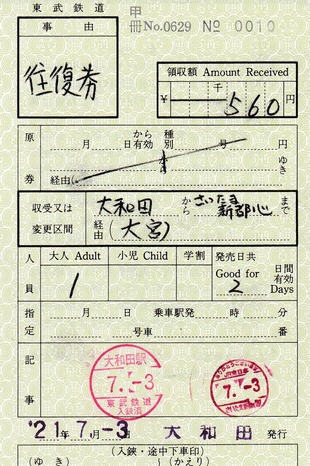 東武鉄道
甲
冊No.0629 № 0010
事由
往復券
領収額 Amount Received
千
¥ 560 円
原券
月 日から有効 種別 号 円
から ゆき
経由(
収受又は変更区間
大和田 から さいたま新都心 まで
経由 (大宮)
人員
大人 Adult 小児 Child 学割
1
発売日共 Good for 2 日間有効 Days
指定
月 日 乗車駅発 時 分
号車 番
記事
大和田駅
7.-3
東武鉄道
入鋏済
7.-3
'21年7月-3日 大和田 発行
(入鋏・途中下車印)
(ゆき) ~(かえり)